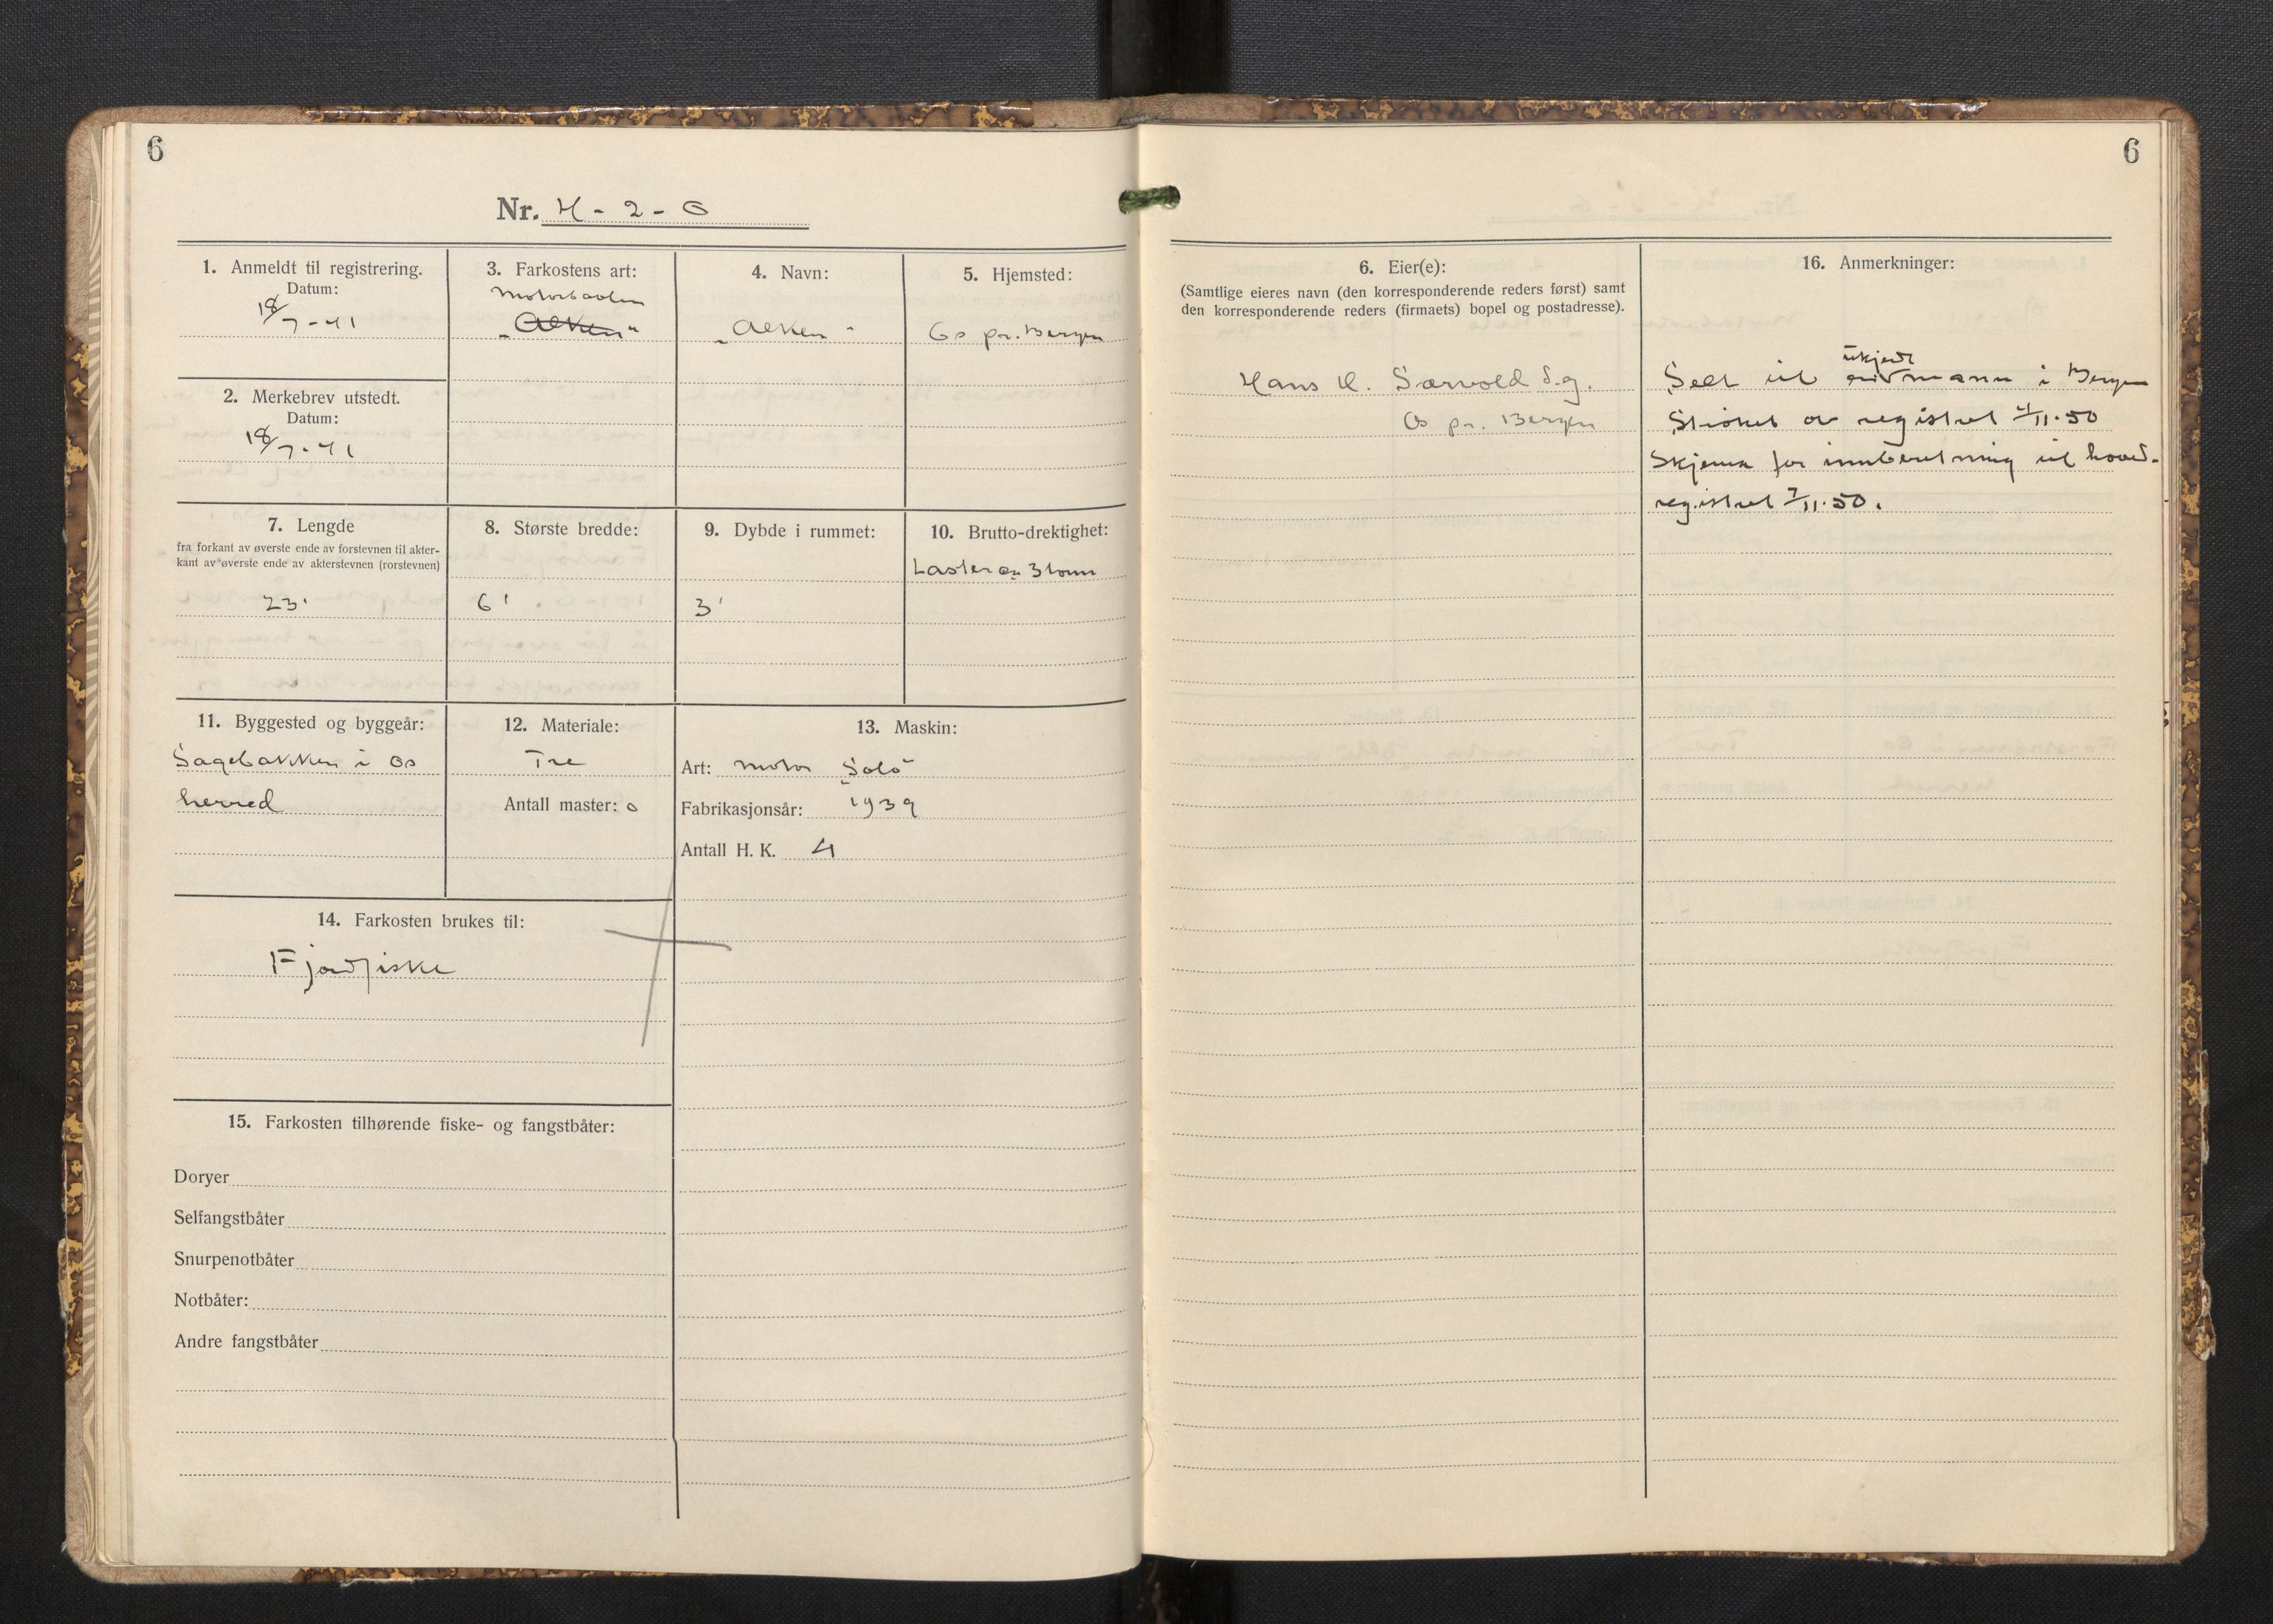 6
Nr. H-2-O
1. Anmeldt til registrering.
Datum:
18/7-41
2. Merkebrev utstedt.
Datum:
18/7-41
3. Farkostens art:
Motorbaaten
„Alken"
4. Navn:
„Alken"
5. Hjemsted:
Os pr. Bergen
7. Lengde
fra forkant av øverste ende av forstevnen til akter-
kant av øverste ende av akterstevnen (rorstevnen)
23'
8. Største bredde:
6'
9. Dybde i rummet:
3'
10. Brutto-drektighet:
Laster ca 3 tonn
11. Byggested og byggeår:
Sagebakken i Os
herred
12. Materiale:
Tre
Antall master: 0
13. Maskin:
Art: motor „Solo"
Fabrikasjonsår: 1939
Antall H. K. 4
14. Farkosten brukes til:
Fjordfiske
15. Farkosten tilhørende fiske- og fangstbåter:
Doryer
Selfangstbåter
Snurpenotbåter
Notbåter:
Andre fangstbåter
6
6. Eier(e):
(Samtlige eieres navn (den korresponderende reders først) samt
den korresponderende reders (firmaets) bopel og postadresse).
Hans H. Særvold S.g.
Os pr. Bergen
16. Anmerkninger:
ukjent
Selt til mann i Bergen
Strøket av registret 4/11-50
Skjema for innberetning til hoved-
registret 7/11-50.